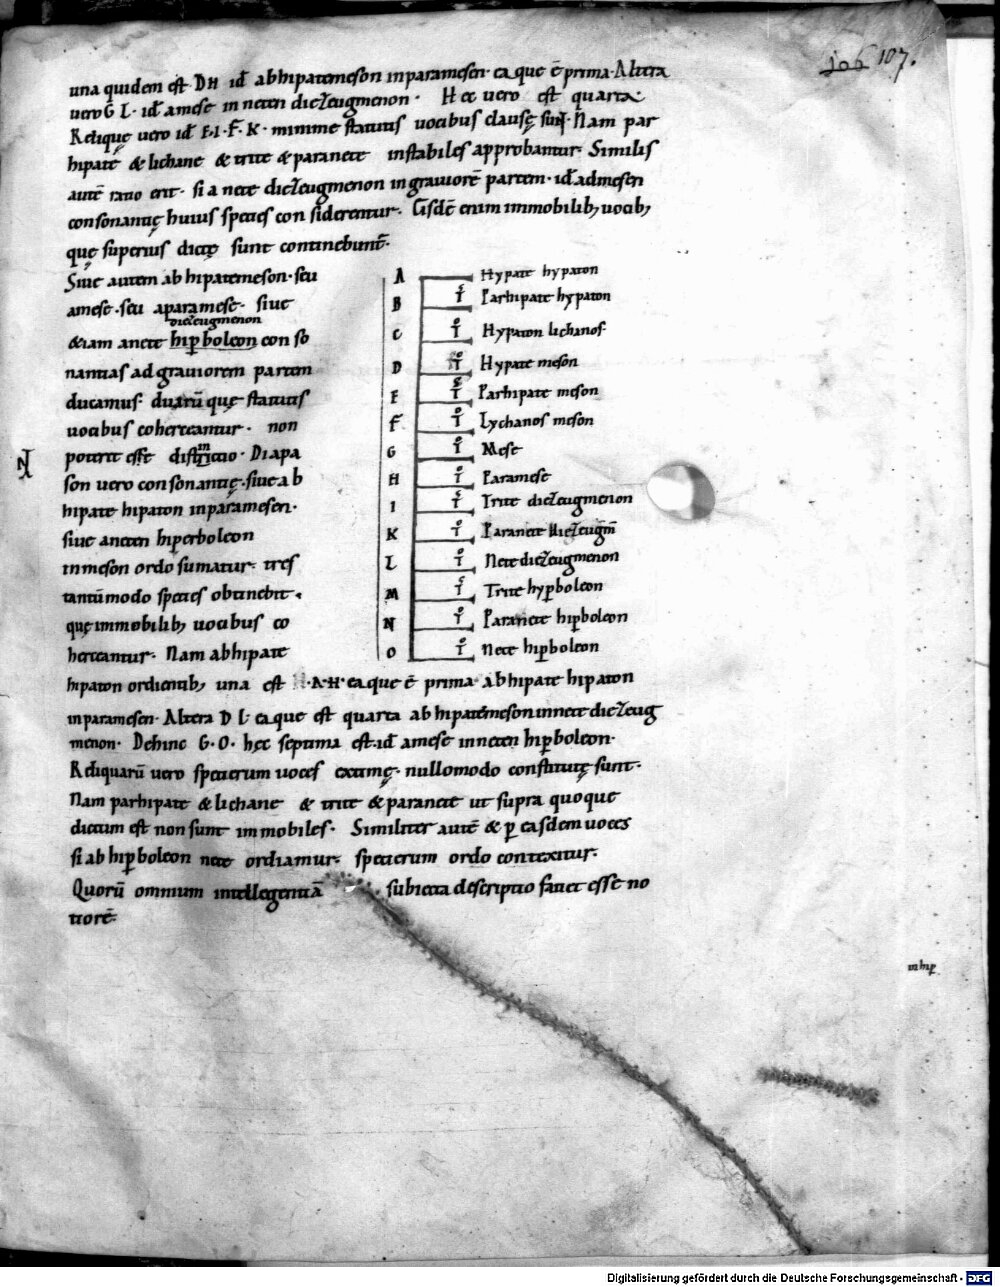 106 107.
una quidem est DH id̄ abhipatemeson inparamesen· eaque ē prima· Altera
vero G L· id̄ amese in neten diezeugmenon· Hec uero est quarta·
Relique uero id̄ E·I·F·K· minime statutis uocibus clausę sunt· Nam par
hipatę & lichane & trite & paranete instabiles approbantur· Similis
autē ratio erit· si a nete diezeugmenon in grauiorē partem· id̄ admesen
consonantię huius species considerentur· Eisdē enim immobilib; uocib;
quę superius dictę sunt continebunt̄·
Siue autem ab hipatemeson· seu
amese· seu aparamese· siue
diezeugmenon
etiam anete hiperboleon conso
nantias ad grauiorem partem
ducamus· duarū quę statutis
uocibus coherceantur· non
poterit esse distinctio· Diapa
son uero consonantię· siue ab
hipate hipaton inparamesen·
siue aneten hiperboleon
inmeson ordo sumatur· tres
tantūmodo species obtinebit·
quę immobilib; uocibus co
herceantur· Nam abhipate
A Hypate hypaton
B Parhipate hypaton
C Hypaton lichanos
D Hypate meson
E Parhipate meson
F Lychanos meson
G Mese
H Paramese
I Trite diezeugmenon
K Paranete diezeugm̄
L Nete diezeugmenon
M Trite hyp̄boleon
N Paranete hip̄boleon
O Nete hip̄boleon
hipaton ordientib; una est ·A·H· eaque ē prima· abhipate hipaton
inparamesen· Altera D L· eaque est quarta ab hipatemeson innete diezeug
menon· Dehinc G·O· hęc septima est· id̄ amese inneten hip̄boleon·
Reliquarū uero specierum uoces extimę· nullomodo constitutę sunt·
Nam parhipate & lichane & trite & paranete ut supra quoque
dictum est non sunt immobiles· Similiter autē & p̄ easdem uoces
si ab hip̄boleon nete ordiamur· specierum ordo contexitur·
Quorū omnium intellegentiā subiecta descriptio faciet esse no
tiorē·
inhip̄
Digitalisierung gefördert durch die Deutsche Forschungsgemeinschaft - DFG